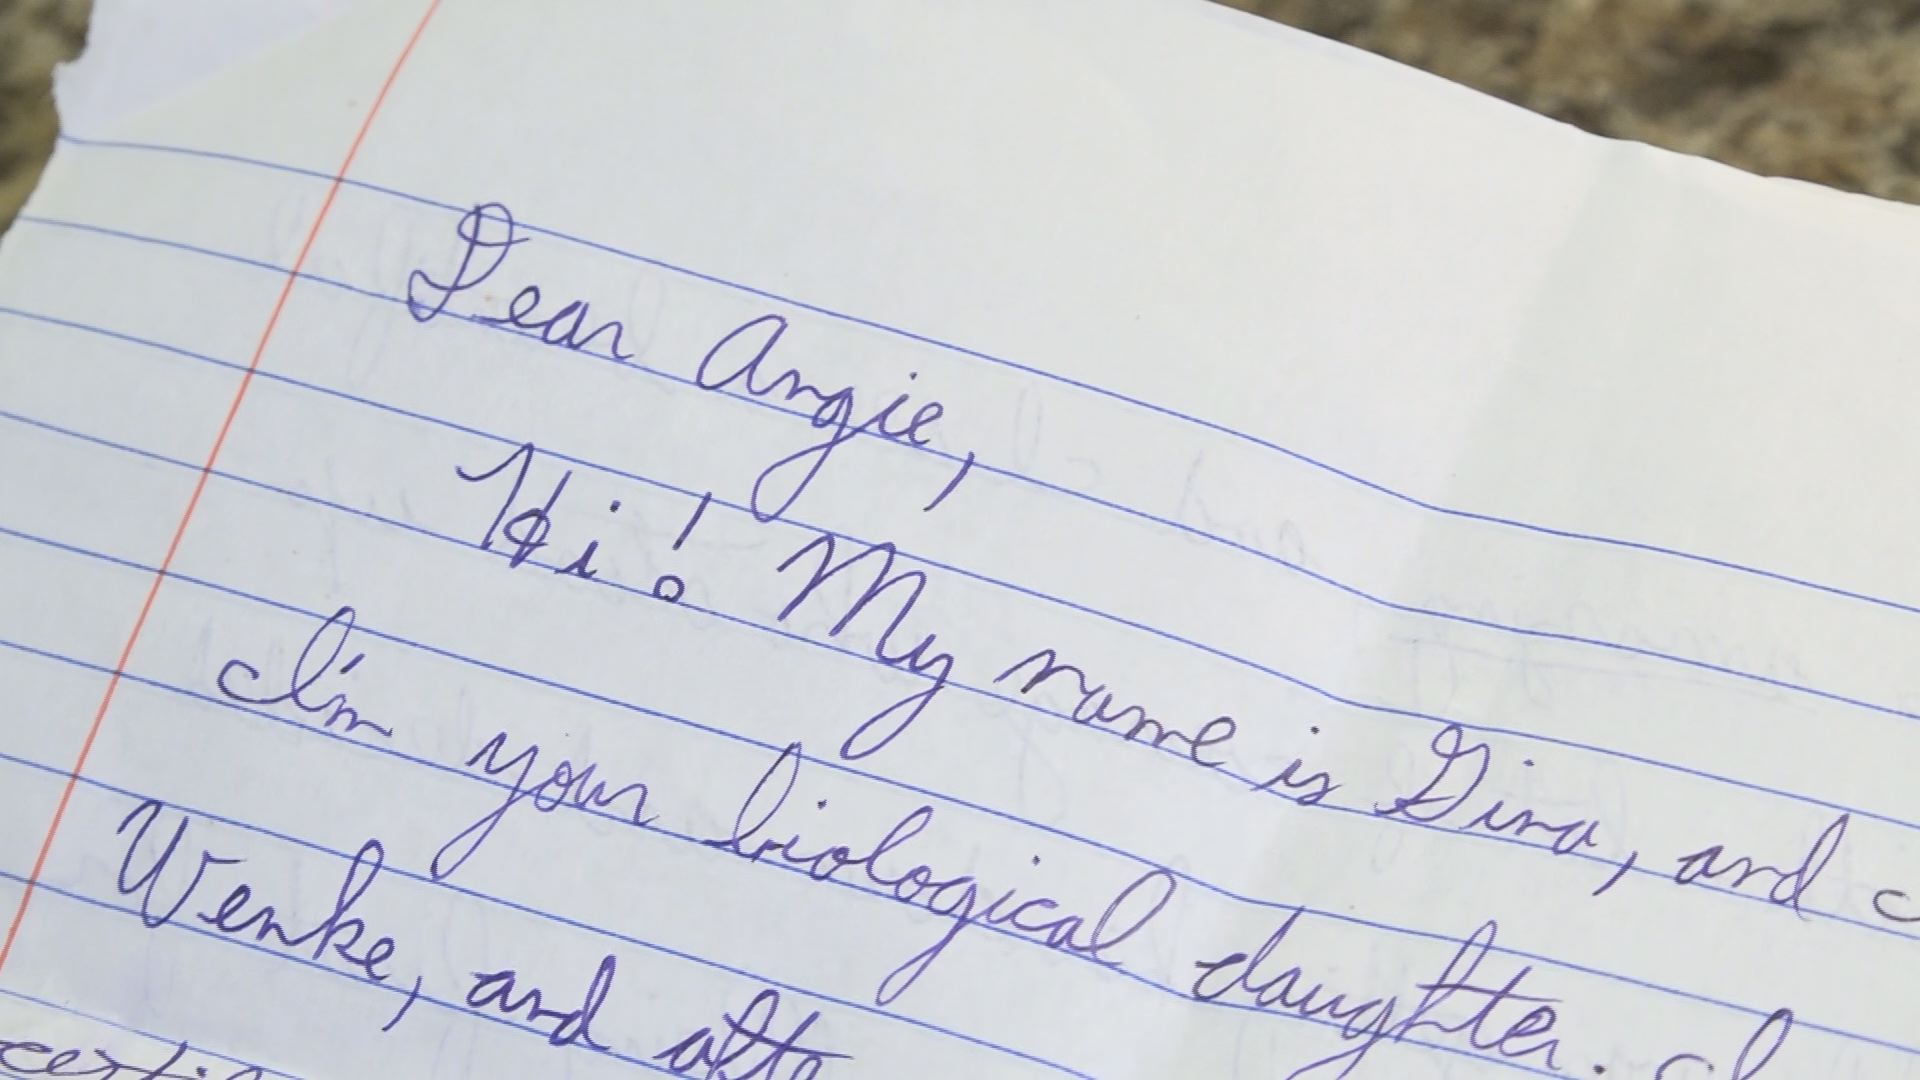 Dear Angie,
Hi! My name is Gina, and
I'm your biological daughter. I
Wenke, and